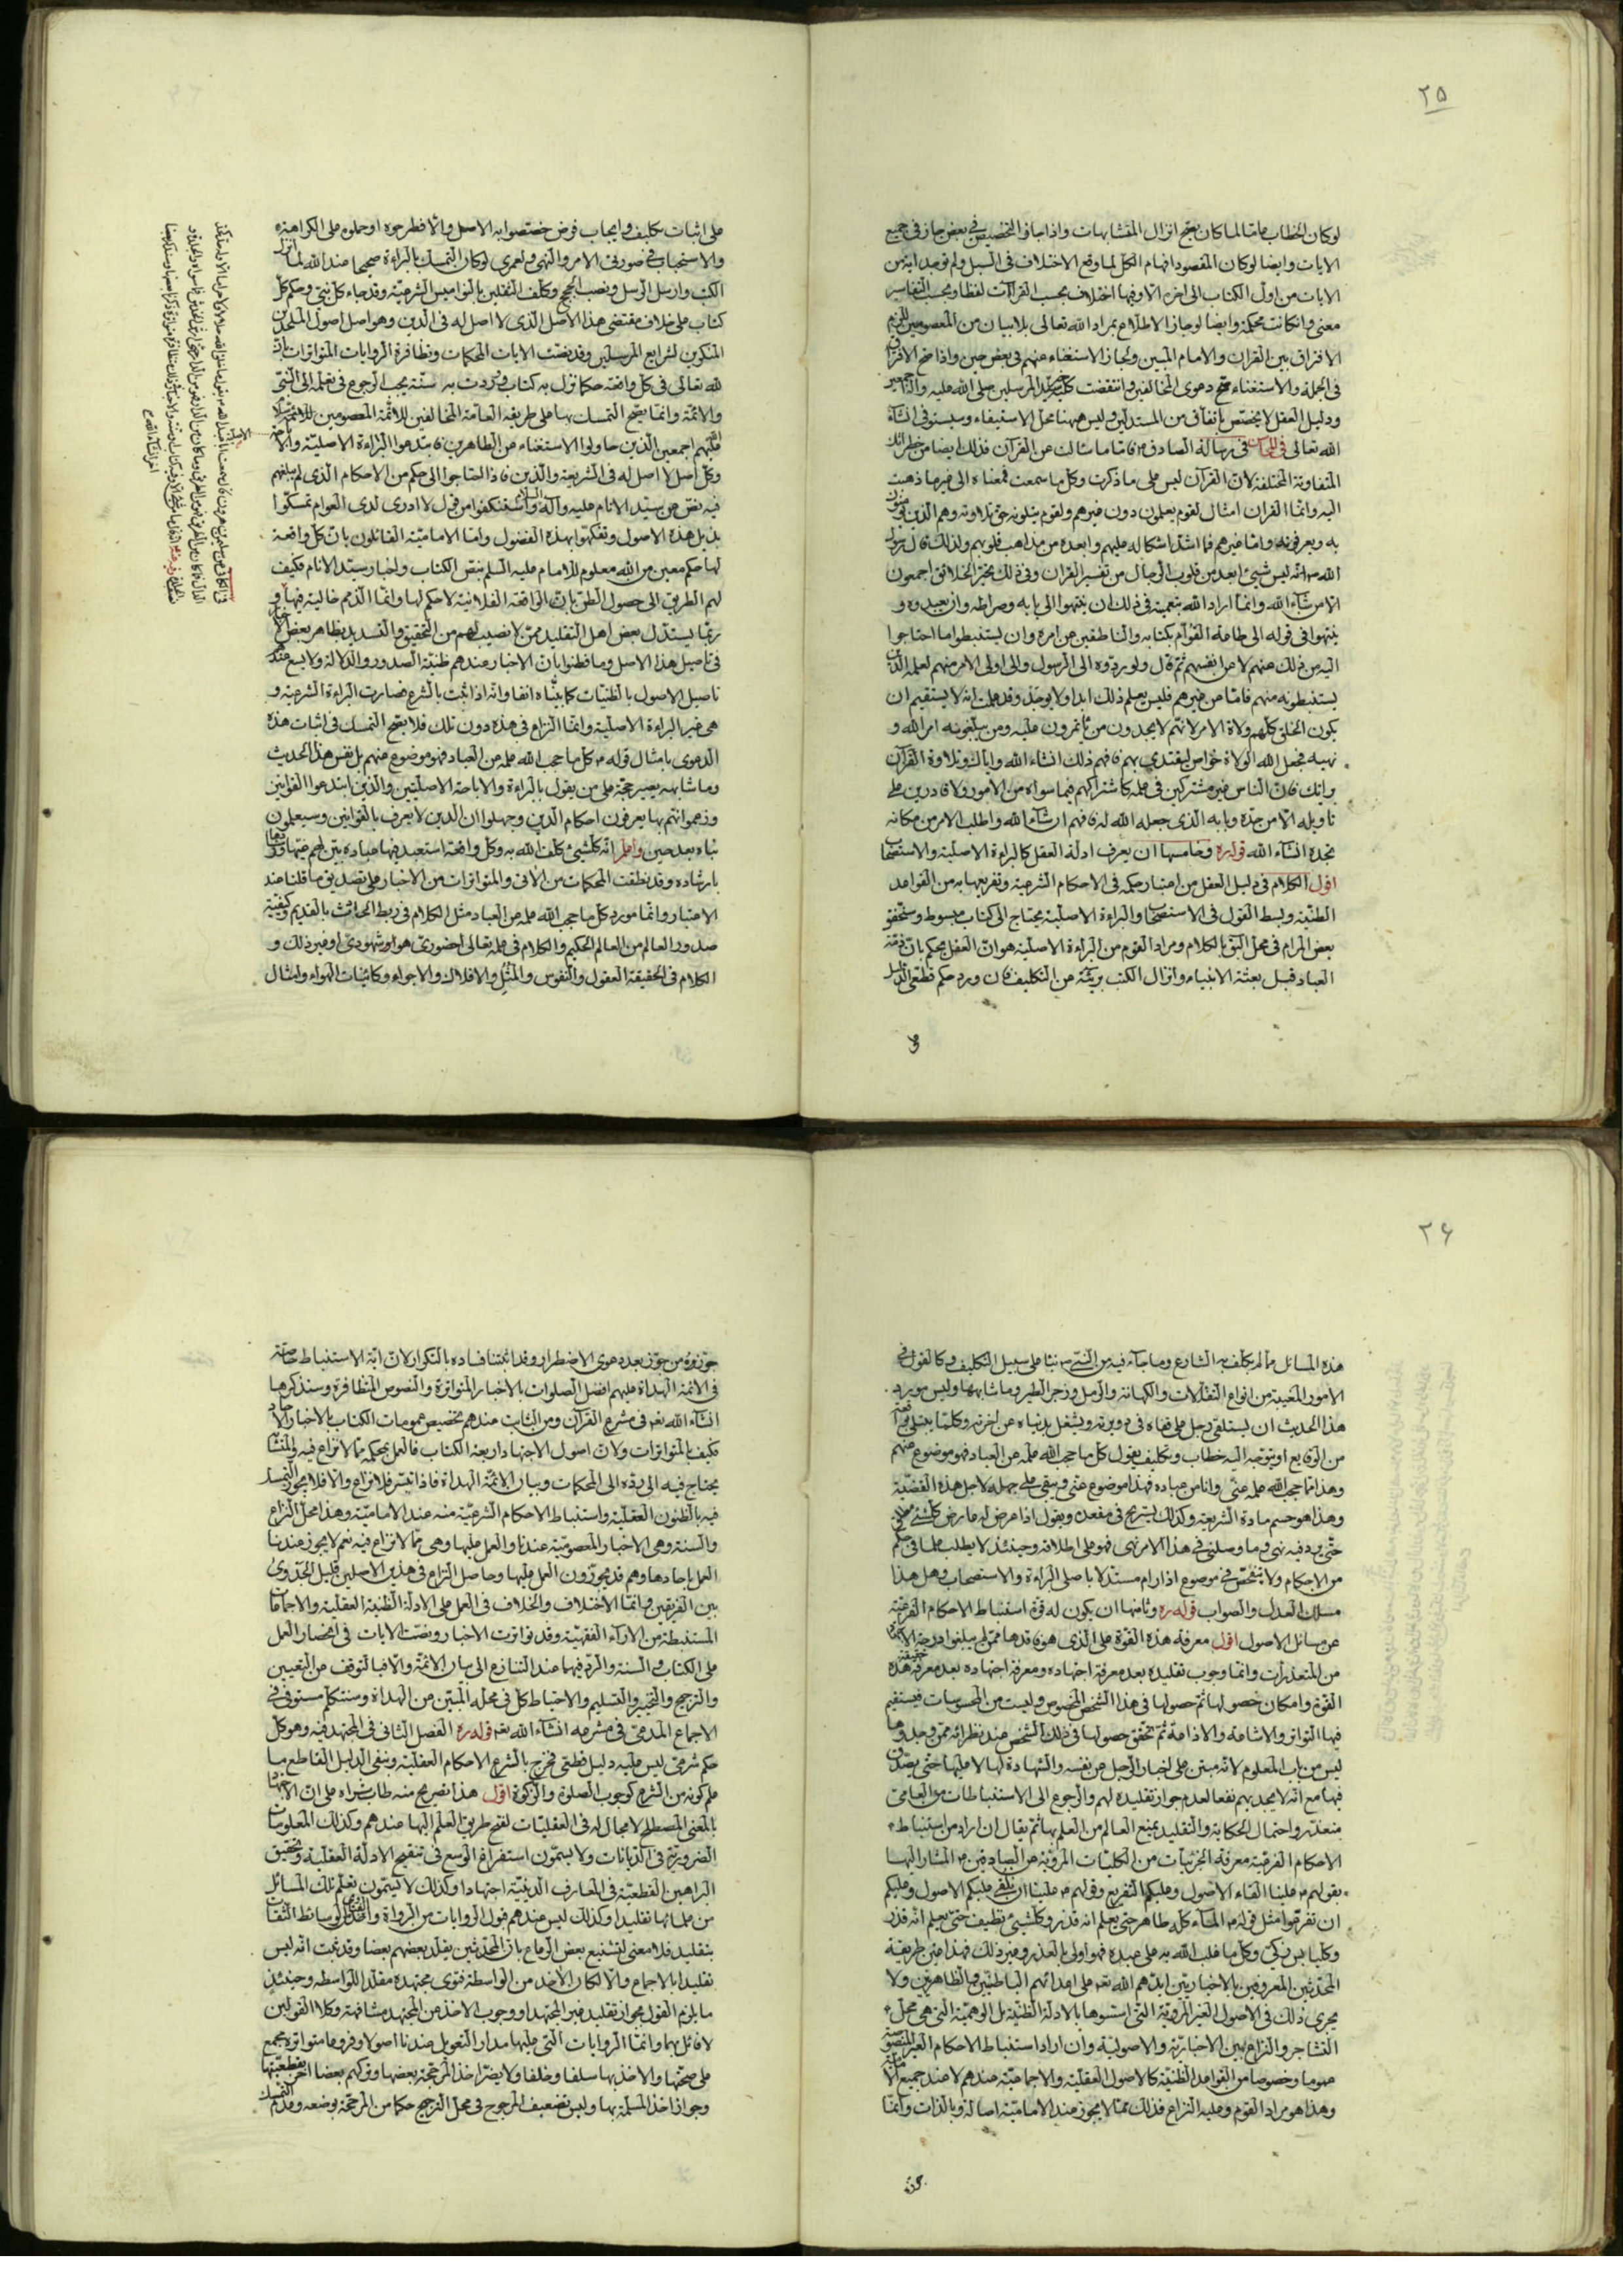 ٢٥
لو كان الخطاب عاما لما كان يصح انزال المتشابهات واذا جاز التخصيص في بعض جاز في جميع
الايات وايضا لو كان المقصود افهام الكل لما وقع الاختلاف في السبل ولم توجد اية من
الايات من اول الكتاب الى اخره الا وفيها اختلاف بحسب القراآت لفظا وبحسب التفاسير
معنى وان كانت محكمة وايضا لو جاز الاطلاع بمراد الله تعالى بلا بيان من المعصومين للزم
الافتراق بين القران والامام المبين ولجاز الاستغناء عنهم في بعض حين واذا صح الافتراق
في الجملة والاستغناء صح دعوى المخالفين وانتقضت كلمة سيد المرسلين صلى الله عليه واله
ودليل العقل لا يختص باتفاق من المستدلين وليس ههنا محل الاستيفاء وسيستوفى انشاء
الله تعالى في رسالة الصادق ع فاما ما سالت عن القرآن فذلك ايضا من خطراتك
المتفاوتة المختلفة لان القرآن ليس على ما ذكرت وكل ما سمعت فمعناه الى غير ما ذهبت
اليه وانما القران امثال لقوم يعلمون دون غيرهم ولقوم يتلونه حق تلاوته وهم الذين يؤمنون
به ويعرفونه واما غيرهم فما اشد اشكاله عليهم وابعده من مذاهب قلوبهم ولذلك قال رسول
الله ص انه ليس شيئ ابعد من قلوب الرجال من تفسير القران وفي ذلك تحير الخلائق اجمعون
الا من شآء الله وانما اراد الله بتعميته في ذلك ان ينتهوا الى بابه وصراطه وان يعبدوه و
ينتهوا في قوله الى طاعة القوام بكتابه والناطقين عن امره وان يستنبطوا ما احتاجوا
اليه من ذلك عنهم لا عن انفسهم ثم قال ولو ردوه الى الرسول والى اولى الامر منهم لعلمه الذين
يستنبطونه منهم فاما من غيرهم فليس يعلم ذلك ابدا ولا يوجد وقد علمت انه لا يستقيم ان
يكون الخلق كلهم ولاة الامر لانهم لا يجدون من ياتمرون عليه ومن يبلغونه امر الله و
نهيه فجعل الله الولاة خواص ليقتدى بهم فافهم ذلك انشاء الله واياك وتلاوة القرآن
برايك فان الناس غير مشتركين في علمه كاشتراكهم فيما سواه من الامور ولا قادرين على
تاويله الا من حده وبابه الذى جعله الله له فافهم ان شآء الله واطلب الامر من مكانه
تجده انشاء الله قوله ره وخامسها ان يعرف ادلة العقل كالبراءة الاصلية والاستصحاب
اقول الكلام في دليل العقل من اعتبار حكمه في الاحكام الشرعية وتفريعها به من القواعد
الظنية وبسط القول في الاستصحاب والبراءة الاصلية يحتاج الى كتاب مبسوط وسنحقق
بعض المرام في محل اليق بالكلام ومراد القوم من البراءة الاصلية هو ان العقل يحكم بان ذمة
العباد قبل بعثة الانبياء وانزال الكتب بريئة عن التكليف فان ورد حكم قطعى الدليل
على اثبات تكليف وايجاب فرض خصصوا به الاصل والا فطرحوه او حملوه على الكراهة
والاستحباب في صورتى الامر والنهى ولعمرى لو كان التمسك بالبراءة صحيحا عند الله لما انزل
الكتب وارسل الرسل ونصب الحجج وكلف الثقلين بالنواميس الشرعية وقد جاء كل نبى وحكم كل
كتاب على خلاف مقتضى هذا الاصل الذى لا اصل له في الدين وهو اصل اصول الملحدين
المنكرين لشرايع المرسلين وقد نصت الايات المحكمات وتظافرت الروايات المتواترات بان
لله تعالى في كل واقعة حكما نزل به كتاب ووردت به سنة يجب الرجوع في تعلمه الى النبى
والائمة وانما يصح التمسك بها على طريقة العامة المخالفين للائمة المعصومين
عليهم اجمعين الذين حاولوا الاستغناء عن الطاهرين فابتدعوا البراءة الاصلية والاباحة
وكل اصل لا اصل له في الشريعة والدين فاذا احتاجوا الى حكم من الاحكام الذى لم يبلغهم
فيه نص عن سيد الانام عليه وآله السلام واستنكفوا من قول لا ادرى لدى العوام تمسكوا
بذيل هذه الاصول وتفكهوا بهذه الفضول واما الامامية القائلون بان كل واقعة
لها حكم معين من الله معلوم للامام عليه السلم بنص الكتاب واخبار سيد الانام فكيف
لهم الطريق الى حصول الظن بان الواقعة الفلانية لا حكم لها وانما الذمم خالية فيها و
ربما يستدل بعض اهل التقليد ممن لا نصيب لهم من التحقيق والتسديد بظاهر بعض
في تاصيل هذا الاصل وما فطنوا بان الاخبار عندهم ظنية الصدور والدلالة ولا يسع عندهم
تاصيل الاصول بالظنيات كما بيناه انفا وانه اذا ثبت بالشرع فصارت البراءة الشرعية و
هى غير البراءة الاصلية وانما النزاع في هذه دون تلك فلا يصح التمسك في اثبات هذه
الدعوى بامثال قوله ع كل ما حجب الله علمه عن العباد فهو موضوع عنهم بل نفس هذا الحديث
وما شابهه يصير حجة على من يقول بالبراءة والاباحة الاصليتين والذين ابتدعوا القوانين
وزعموا انهم بها يعرفون احكام الدين وجهلوا ان الدين لا يعرف بالقوانين وسيعلمون
نباه بعد حين واعلم ان كلشيئ كلف الله به وكل واقعة استعبد فيها عباده بين لهم
بارشاده وقد نطقت المحكمات من الاى والمتواترات من الاخبار على تصديق ما قلنا عند
الاعتبار وانما مورد كل ما حجب الله علمه عن العباد مثل الكلام في ربط الحادث بالقديم وكيفية
صدور العالم من العالم الحكيم والكلام في علمه تعالى احضورى هو او شهودى او غير ذلك و
الكلام في الحقيقة العقول والنفوس والمثل والافلاك والاجواء وكائنات الهواء وامثال
٢۶
هذه المسائل مما لم يكلف به الشارع وما جآء فيه من النبى ص نبا على سبيل التكليف وكالقول في
الامور المغيبة من انواع التفألات والكهانة والرمل وزجر الطير وما شابهها وليس مورد
هذا الحديث ان يستلقى رجل على قفاه في دويرته ويشغل بدنياه عن اخرته وكلما يبتلى بواقعة
من الوقايع او يتوجه اليه خطاب وتكليف يقول كل ما حجب الله علمه عن العباد فهو موضوع عنهم
وهذا مما حجب الله علمه عنى وانا من عباده فهذا موضوع عنى ويبقى على جهله لاجل هذه القضية
وهذا هو حسم مادة الشريعة وكذلك يستريح في مقعده ويقول اذا عرض له عارض كلشئ مطلق
حتى يرد فيه نهى وما وصلنى في هذا الامر نهى فهو على اطلاقه وحينئذ لا يطلب علما في حكم
من الاحكام ولا يتفحص في موضوع اذا رام مستدلا باصلى البراءة والاستصحاب وهل هذا
مسلك العدل والصواب قوله ره وثامنها ان يكون له قوة استنباط الاحكام الفرعية
عن مسائل الاصول اقول معرفة هذه القوة على الذى هو فاقدها ممن لم يبلغوا درجة الاجتهاد
من المتعذرات وانما وجوب تقليده بعد معرفة اجتهاده ومعرفة اجتهاده بعد معرفة هذه
القوة وامكان حصولها ثم حصولها في هذا الشخص المخصوص وليست من المحسوسات فيستقيم
فيها التواتر والاشاعة والاذاعة ثم تحقق حصولها في ذلك الشخص عند نظرائه ممن وجدوها
ليس من باب المعلوم لانه مبتن على اخبار الرجل عن نفسه والشهادة لها لا عليها حتى يصدق
فيها مع انه لا يجديهم نفعا لعدم جواز تقليده لهم والرجوع الى الاستنباطات من العامى
متعذر واحتمال الحكاية والتقليد يمنع العالم من العلم بها ثم يقال ان اراد من استنباط
الاحكام الفرعية معرفة الجزئيات من الكليات المروية عن الصادقين ع المشار اليها
بقولهم ع علينا القاء الاصول وعليكم التفريع وقولهم ع علينا ان نلقى عليكم الاصول وعليكم
ان تفرعوا مثل قوله ع المآء كله طاهر حتى يعلم انه قذر وكلشيئ نظيف حتى يعلم انه قذر
وكل يابس ذكى وكل ما غلب الله به على عبده فهو اولى بالعذر وغير ذلك فهذا عين طريقة
المحدثين المعروفين بالاخباريين ايدهم الله تعم على اعدائهم الباطنين والظاهرين ولا
يجرى ذلك في الاصول الغير المروية التى اسسوها بالادلة الظنية بل الوهمية التى هى محل
التشاجر والنزاع بين الاخبارية والاصولية وان اراد استنباط الاحكام الغير المنصوصة
عموما وخصوصا من القواعد الظنية كالاصول العقلية والاجماعية عندهم لا عند جميع
وهذا هو مراد القوم وعليه النزاع فذلك مما لا يجوز عند الامامية اصالة وبالذات وانما
جوزوه من جوز بعد دعوى الاضطرار وقد اثبتنا فساده بالتكرار لان اية الاستنباط خاصة
في الائمة الهداة عليهم افضل الصلوات بالاخبار المتواترة والنصوص المتظافرة وسنذكرها
انشآء الله تعم في مشرع القرآن ومن الثابت عندهم تخصيص عمومات الكتاب بالاخبار الآحاد
فكيف بالمتواترات ولان اصول الاجتهاد اربعة الكتاب فالعمل بحكمه مما لا نزاع فيه والمتشابه
يحتاج فيه الى رده الى المحكمات وبيان الائمة الهداة فاذا تيسر فلا نزاع والا فلا يجوز التمسك
فيه بالظنون العقلية واستنباط الاحكام الشرعية منه عند الامامية وهذا محل النزاع
والسنة وهى الاخبار المعصومية عندنا والعمل عليها وهى مما لا نزاع فيه نعم لا يجوز عندنا
العمل باحادها وهم قد يجوزون العمل عليها وحاصل النزاع في هذين الاصلين قليل الجدوى
بين الفريقين وانما الاختلاف والخلاف في العمل على الادلة الظنية العقلية والاجماعات
المستنبطة من الآراء الفقهية وقد تواترت الاخبار ونصت الايات في انحصار العمل
على الكتاب والسنة والرد فيهما عند التنازع الى بيان الائمة والا فبالتوقف عن التعيين
والترجيح والتخيير والتسليم والاحتياط كل في محله المبين من الهداة وسنتكلم مستوفى في
الاجماع المدعى في مشرعه انشآء الله تعم قوله ره الفصل الثانى في المجتهد فيه وهو كل
حكم شرعى ليس عليه دليل قطعى فخرج بالشرع الاحكام العقلية وبنفى الدليل القاطع ما
علم كونه من الشرع كوجوب الصلوة والزكوة اقول هذا تصريح منه طاب ثراه على ان الاجتهاد
بالمعنى المصطلح لا مجال له في العقليات لفتح طريق العلم اليها عندهم وكذلك المعلومات
الضرورية في الديانات ولا يسمون استفراغ الوسع في تنقيح الادلة العقلية وتحقيق
البراهين القطعية في المعارف الدينية اجتهادا وكذلك لا يسمون تعلم تلك المسائل
من علمائها تقليدا وكذلك ليس عندهم قبول الروايات من الرواة والوسائط الثقات
بتقليد فلا معنى لتشنيع بعض الرعاع بان المحدثين يقلد بعضهم بعضا وقد ثبت انه ليس
تقليدا بالاجماع والا لكان الآخذ من الواسطة فتوى مجتهده مقلد اللواسطة وحينئذ
ما يلزم القول بجواز تقليد غير المجتهد او وجوب الاخذ من المجتهد مشافهة وكلا القولين
لا قائل بهما وانما الروايات التى عليها مدار التعويل عندنا اصولا وفروعا متواترة مجمع
على صحتها والاخذ بها سلفا وخلفا ولا يضر اخذ المرجحة بعضها وتركهم بعضا
وجواز اخذ المسلمة بها وليس تضعيف المرجوح في محل الترجيح حكما من المرجحة بوضعه وعدم التمسك